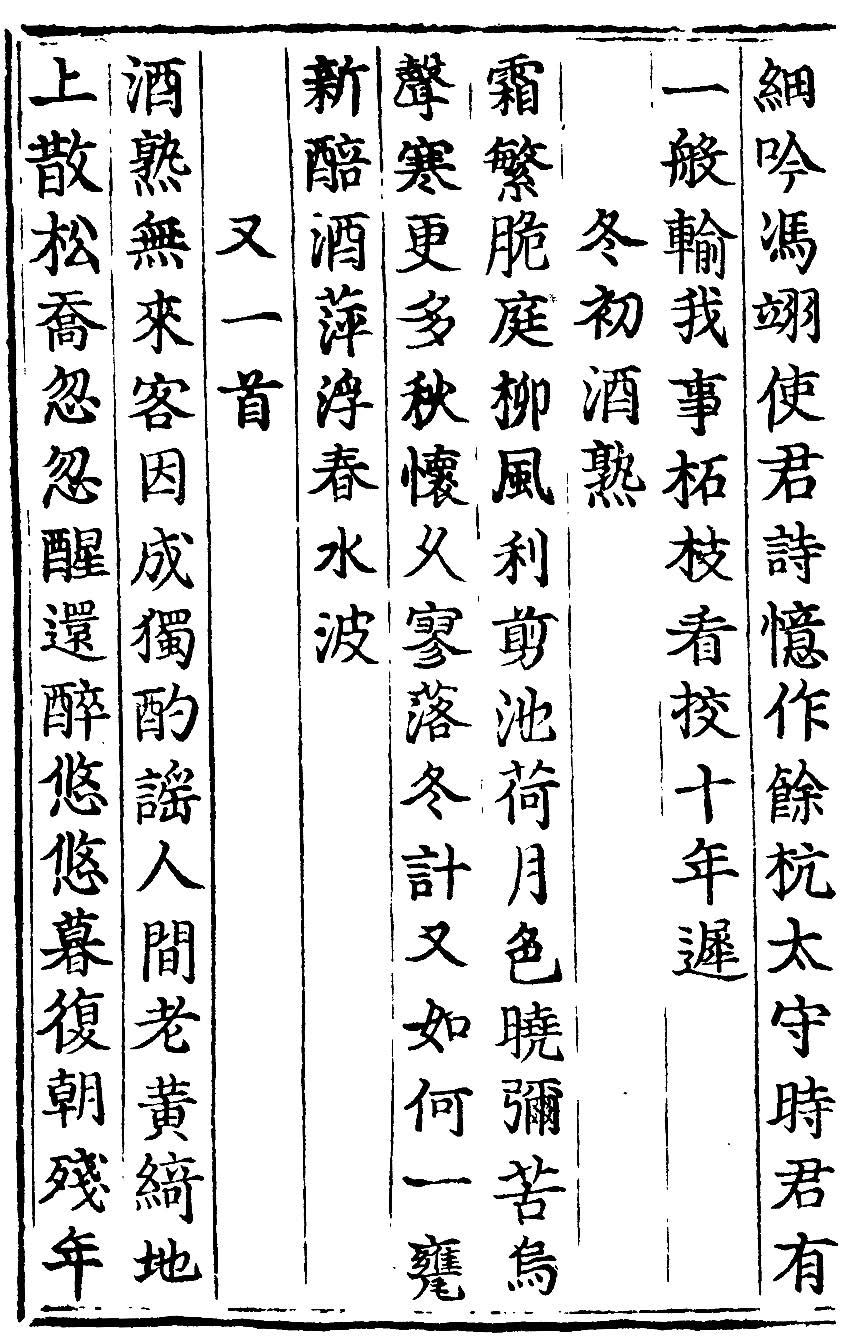 細吟馮翊使君詩憶作餘杭太守時君有
一般輸我事柘枝看挍十年遲
冬初酒熟
霜繁脆庭柳風利剪池荷月色曉彌苦烏
聲寒更多秋懷乆寥落冬計又如何一甕
新醅酒萍浮春水波
又一首
酒熟無來客因成獨酌謡人間老黄綺地
上散松喬忽忽醒還醉悠悠暮復朝殘年